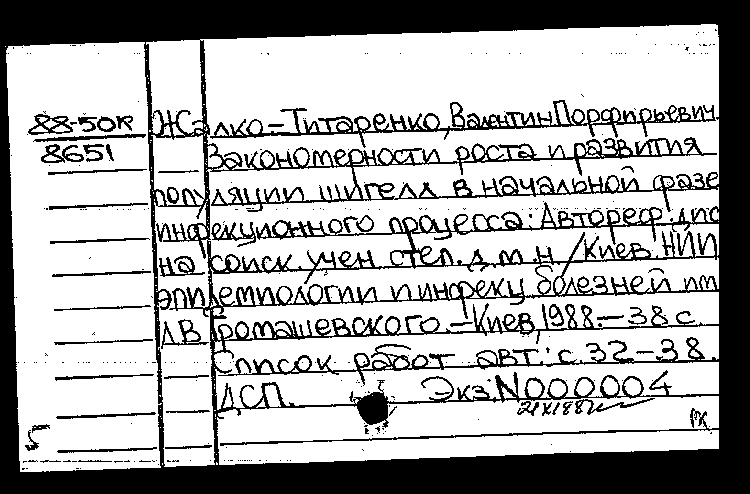 88-50R Жалко-Титаренко, Валентин Порфирьевич.
8651 Закономерности роста и развития
популяции шигелл в начальной фазе
инфекционного процесса: Автореф. дис
на соиск. учен. степ. д.м.н. / Киев. НИИ
эпидемиологии и инфекц. болезней им
Л.В. Громашевского. – Киев, 1988. – 38 с.
Список работ авт.: с. 32 – 38.
ДСП. Экз. N000004
5